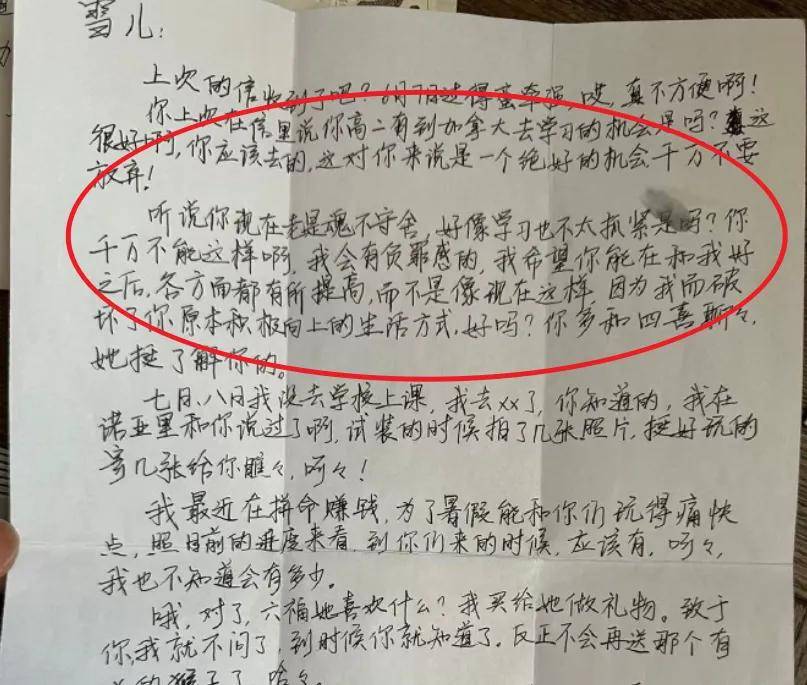 雪儿:
上次的信收到了吧? 6月7日过得蛮牵强, 哎, 真不方便啊!
你上次在信里说你高二有到加拿大去学习的机会是吗? 这
很好啊, 你应该去的, 这对你来说是一个绝好的机会千万不要
放弃!
听说你现在老是魂不守舍, 好像学习也不太抓紧是吗? 你
千万不能这样啊, 我会有负罪感的, 我希望你能在和我好
之后, 各方面都有所提高, 而不是像现在这样, 因为我而破
坏了你原本积极向上的生活方式, 好吗? 你多和四喜聊々,
她挺了解你的。
七日、八日我没去学校上课, 我去xx了, 你知道的, 我在
诺亚里和你说过了啊, 试装的时候拍了几张照片, 挺好玩的
寄几张给你瞧々, 呵々!
我最近在拼命赚钱, 为了暑假能和你们玩得痛快
点, 照目前的进度来看, 到你们来的时候, 应该有, 呵々,
我也不知道会有多少。
哦, 对了, 六福她喜欢什么? 我买给她做礼物。致于
你, 我就不问了, 到时候你就知道了。反正不会再送那个有
的猴子了, 哈々。